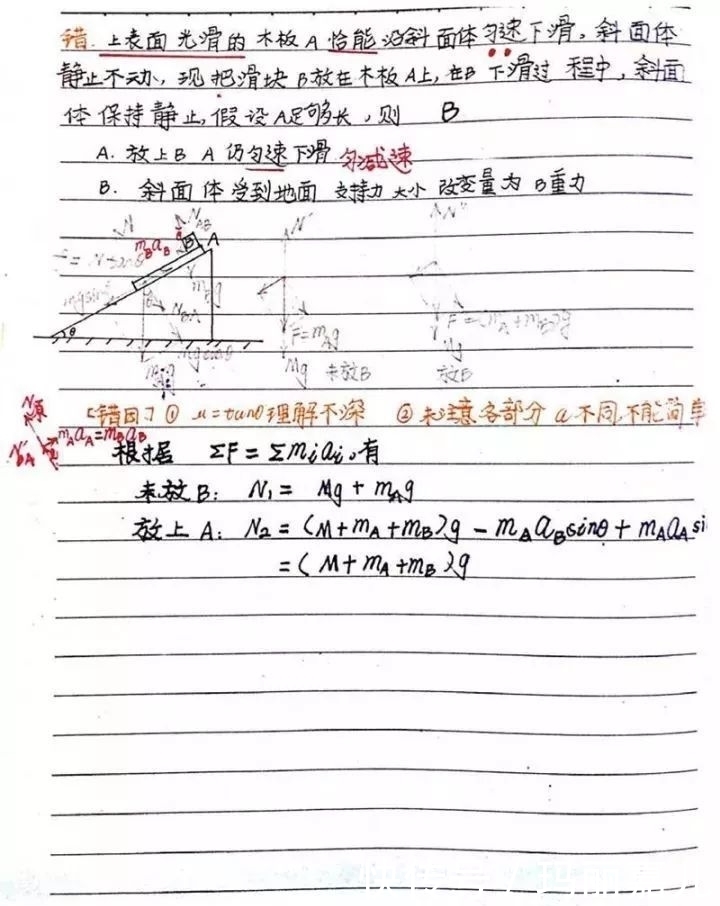 错. 上表面光滑的木板A恰能沿斜面体匀速下滑,斜面体
静止不动,现把滑块B放在木板A上,在B下滑过程中,斜面
体保持静止,假设A足够长,则 B
A. 放上B A仍匀速下滑 匀减速
B. 斜面体受到地面支持力大小改变量为B重力
N N_AB N' N''
m_B a_B B A
mgsinθ θ N_BA m_B g
F=m_A g F=(m_A+m_B)g
θ mgcosθ Mg Mg
m_A g 未放B 放B
[错因] ① u=tanθ理解不深 ② 未注意各部分a不同,不能简单
m_A a_A=m_B a_B
根据 ΣF=Σm_i a_i,有
未放B: N₁= Mg+m_A g
放上A: N₂=(M+m_A+m_B)g-m_B a_B sinθ+m_A a_A si
=(M+m_A+m_B)g